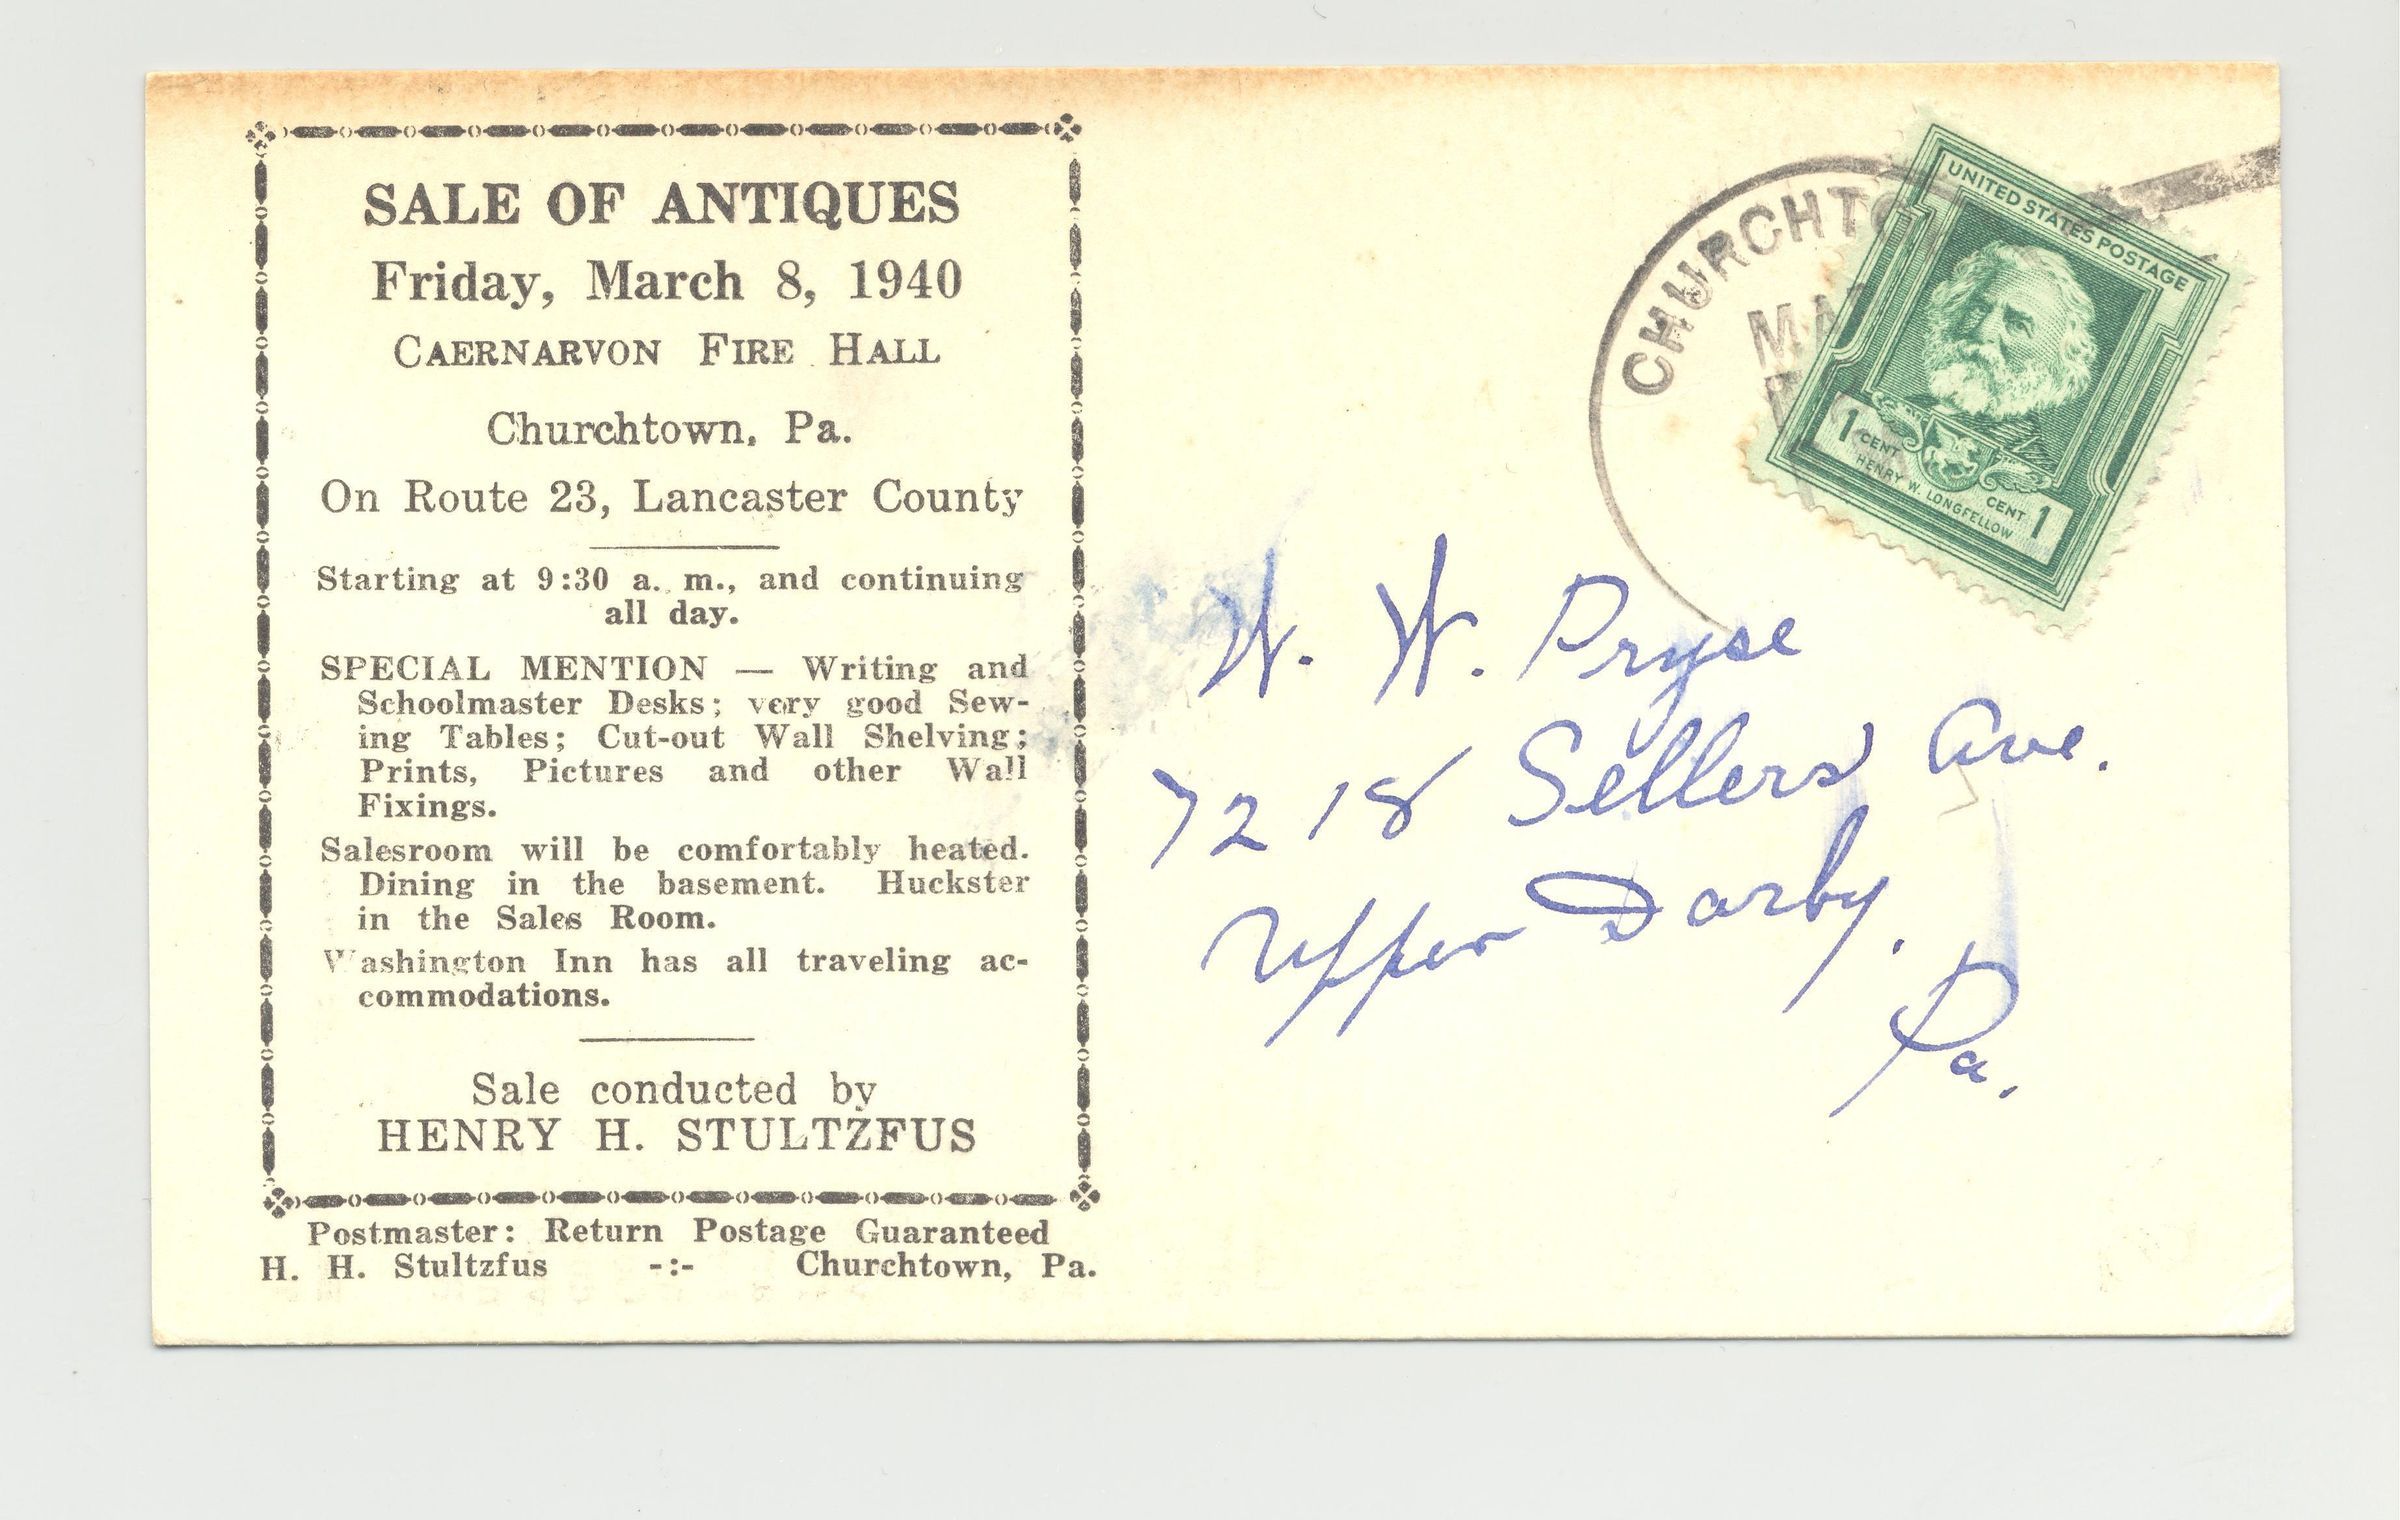 SALE OF ANTIQUES
Friday, March 8, 1940
CAERNARVON FIRE HALL
Churchtown, Pa.
On Route 23, Lancaster County
Starting at 9:30 a. m., and continuing
all day.
SPECIAL MENTION — Writing and
Schoolmaster Desks; very good Sew-
ing Tables; Cut-out Wall Shelving;
Prints, Pictures and other Wall
Fixings.
Salesroom will be comfortably heated.
Dining in the basement. Huckster
in the Sales Room.
Washington Inn has all traveling ac-
commodations.
Sale conducted by
HENRY H. STULTZFUS
Postmaster: Return Postage Guaranteed
H. H. Stultzfus -:- Churchtown, Pa.
UNITED STATES POSTAGE
1 CENT CENT 1
HENRY W. LONGFELLOW
W. W. Pryse
7218 Sellers Ave.
Upper Darby.
Pa.